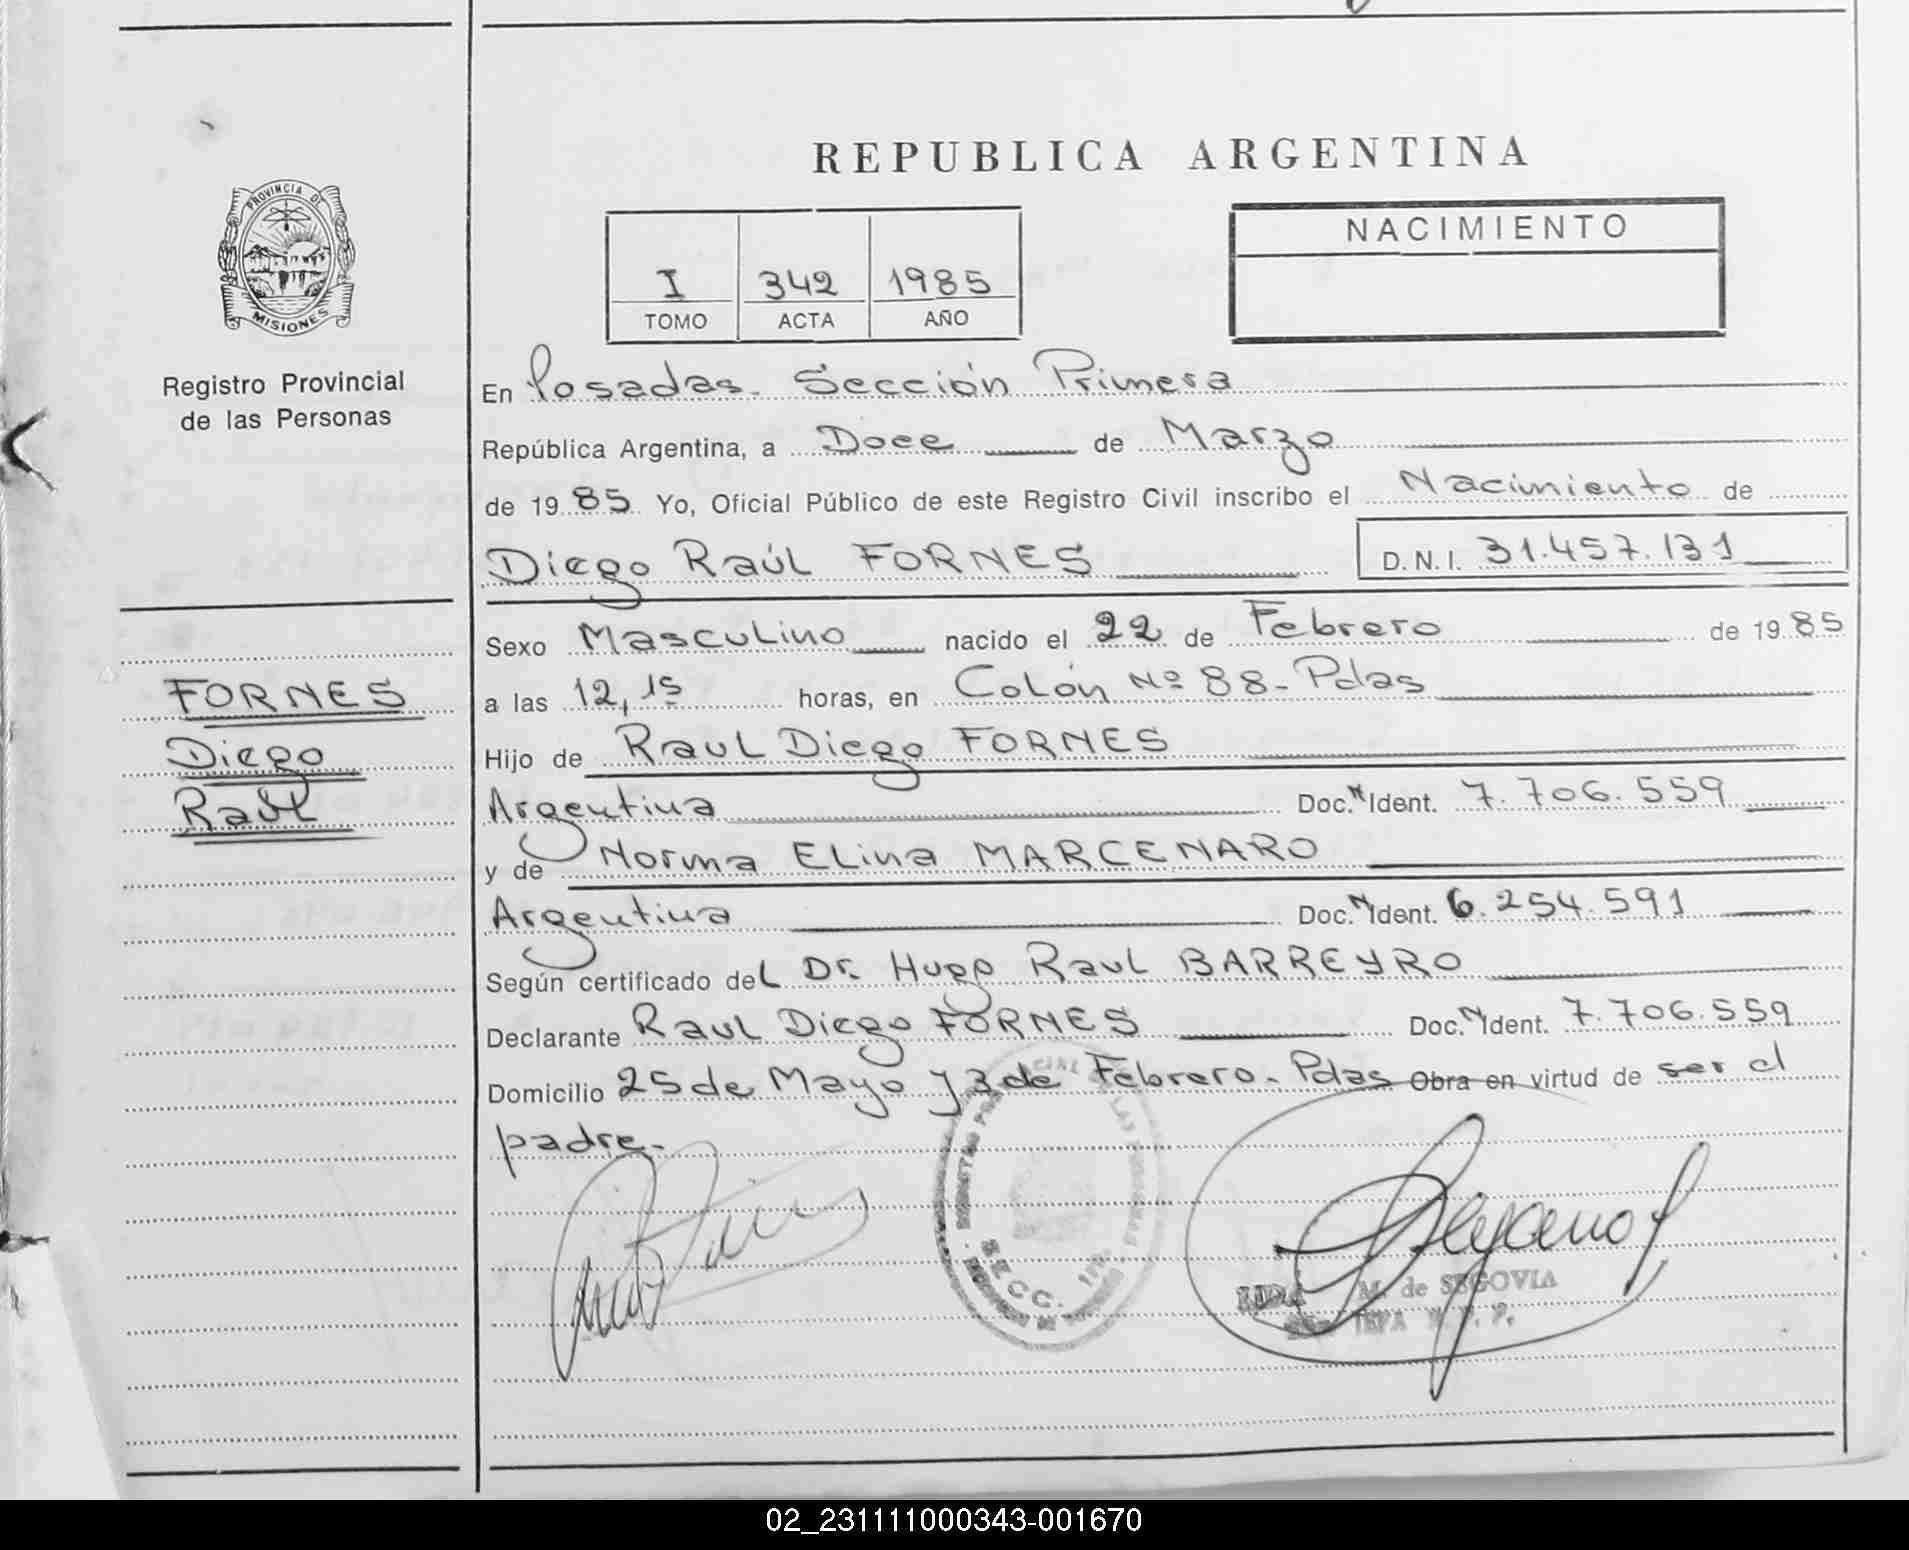 REPUBLICA ARGENTINA
PROVINCIA DE
MISIONES
Registro Provincial
de las Personas
I 342 1985
TOMO ACTA AÑO
NACIMIENTO
En Posadas. Sección Primera
República Argentina, a Doce de Marzo
de 1985 Yo, Oficial Público de este Registro Civil inscribo el Nacimiento de
Diego Raúl FORNES D.N.I. 31.457.131
Sexo Masculino nacido el 22 de Febrero de 1985
a las 12,15 horas, en Colón Nº 88- Pdas
Hijo de Raul Diego FORNES
Argentina Doc. Ident. 7.706.559
y de Norma Elina MARCENARO
Argentina Doc. Ident. 6.254.591
Según certificado del Dr. Hugo Raul BARREYRO
Declarante Raul Diego FORNES Doc. Ident. 7.706.559
Domicilio 25 de Mayo y 3 de Febrero. Pdas Obra en virtud de ser el
padre.
FORNES
Diego
Raúl
SECC. 1ra.
M. de SEGOVIA
02_231111000343-001670